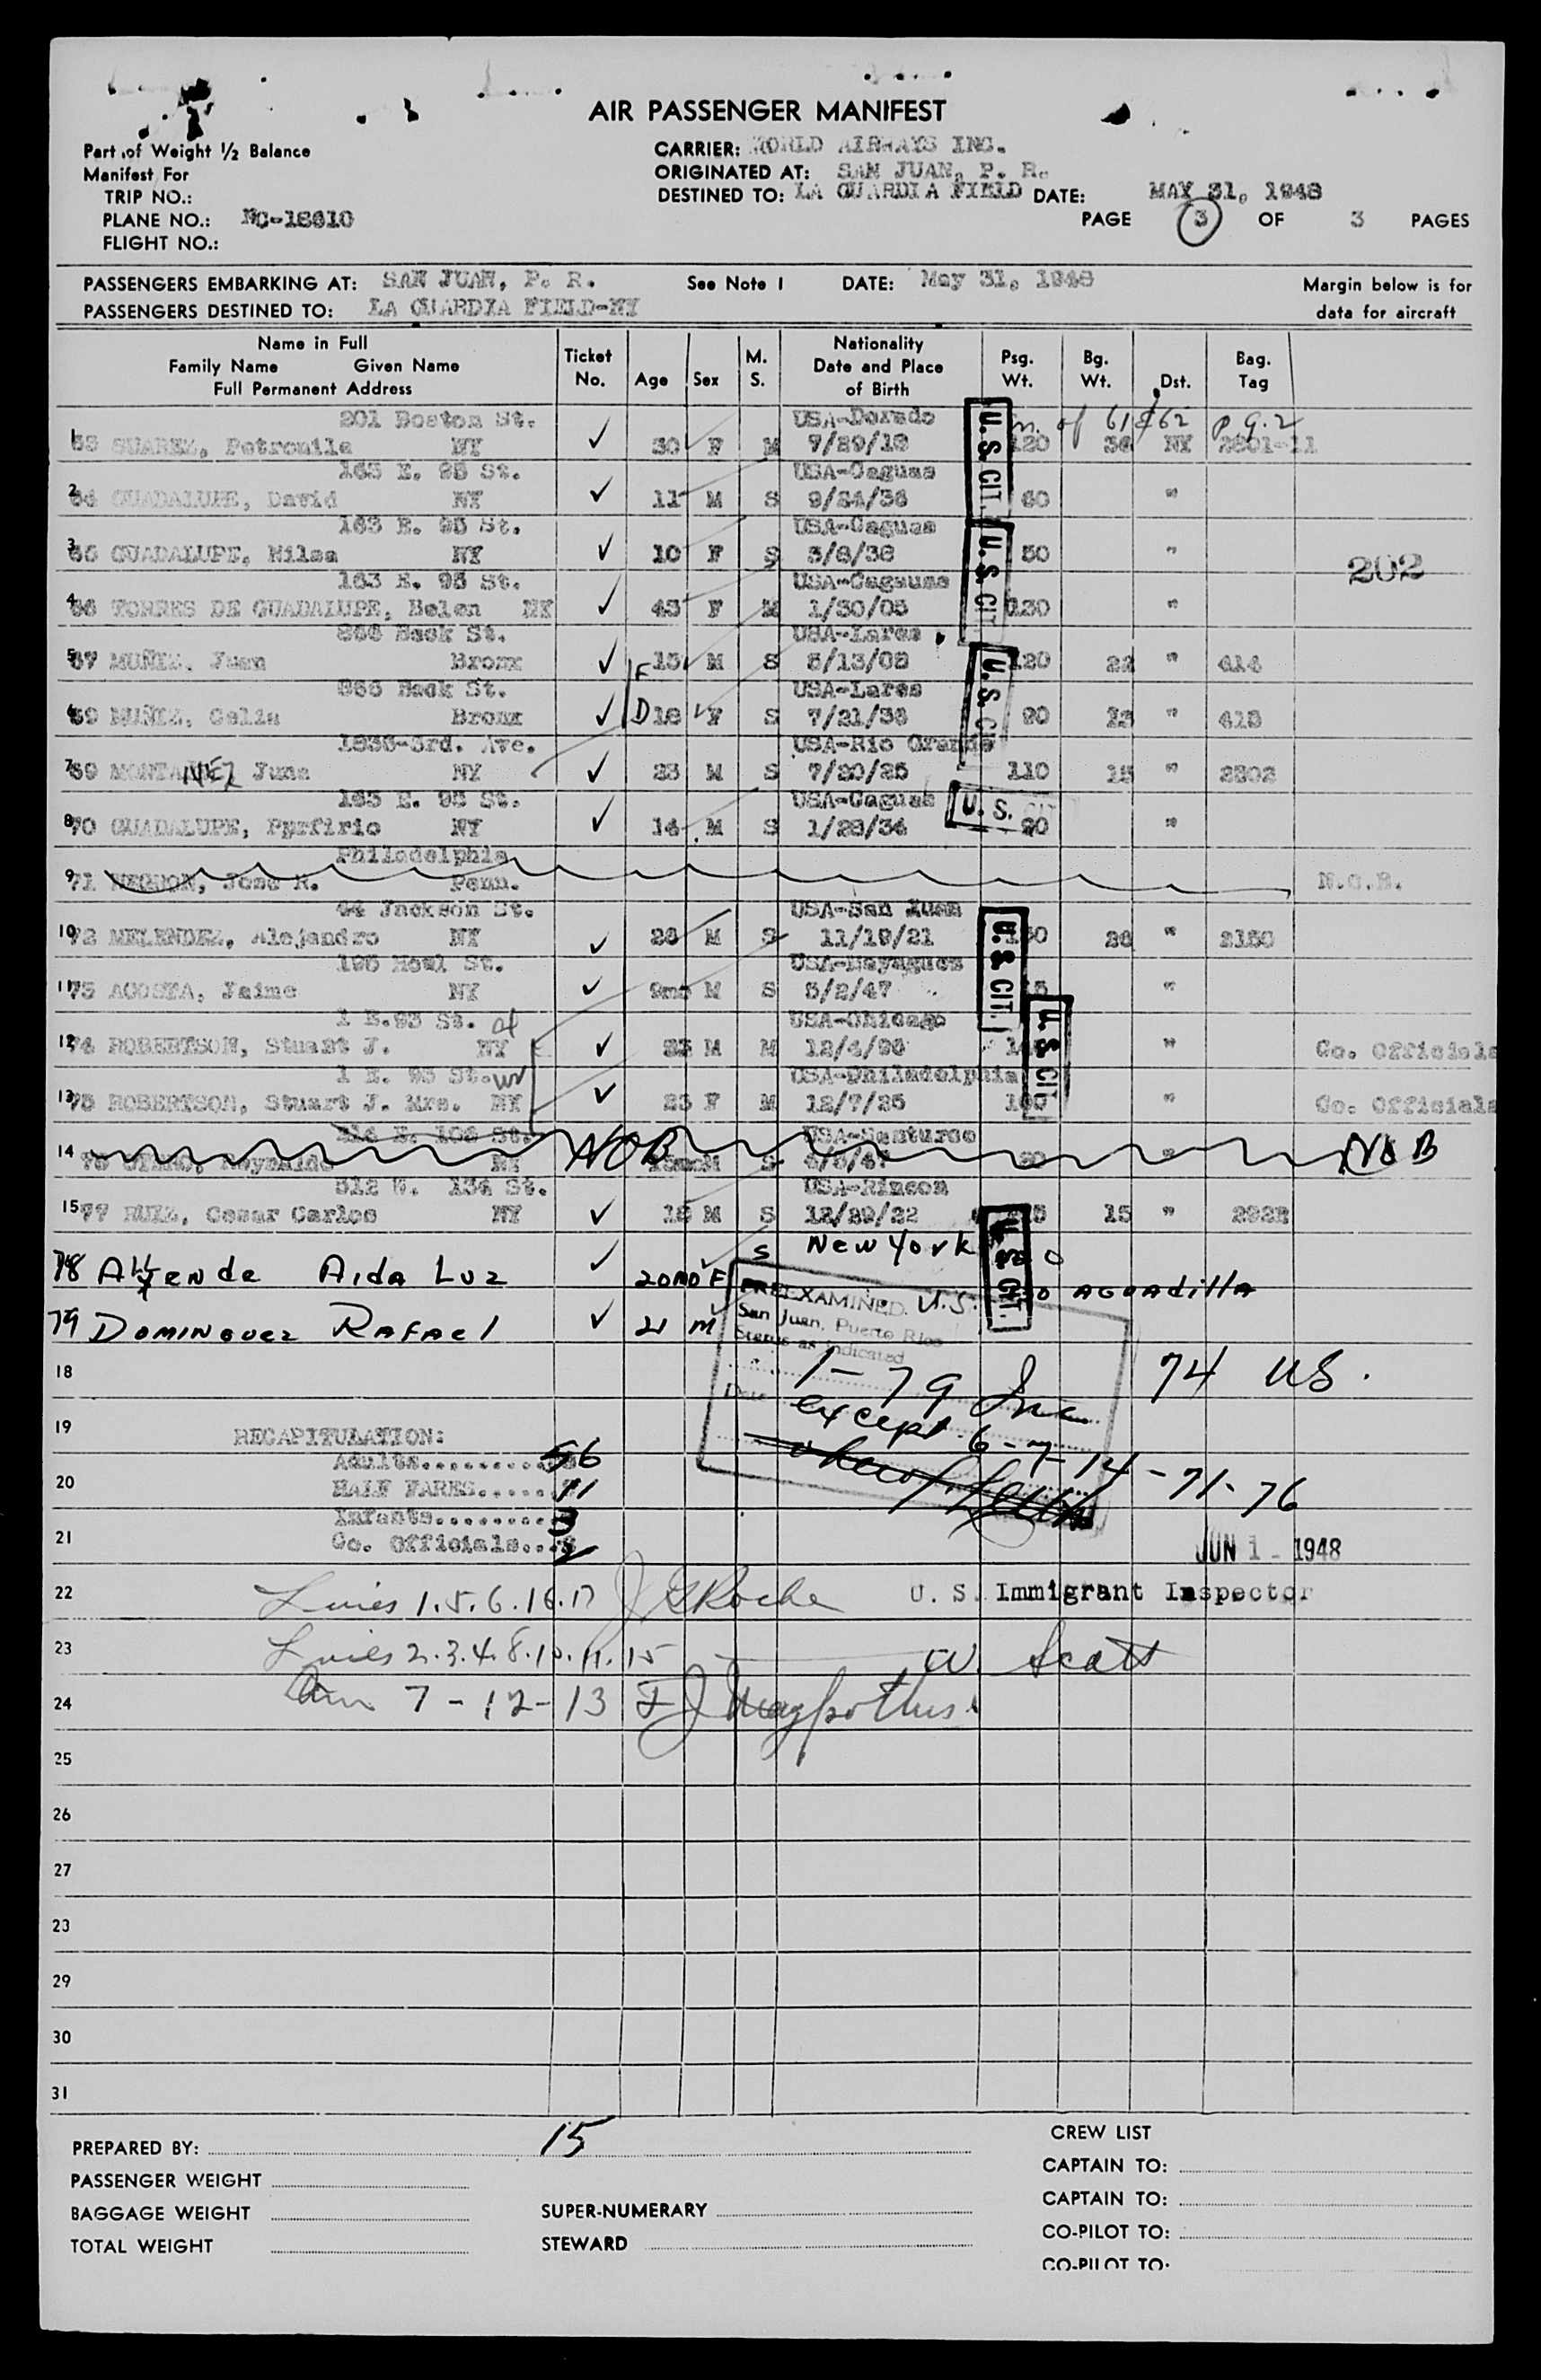 AIR PASSENGER MANIFEST
Part of Weight 1/2 Balance
Manifest For
TRIP NO.:
PLANE NO.: NC-18610
FLIGHT NO.:
CARRIER: WORLD AIRWAYS INC.
ORIGINATED AT: SAN JUAN, P. R.
DESTINED TO: LA GUARDIA FIELD DATE: MAY 31, 1948
PAGE 3 OF 3 PAGES
PASSENGERS EMBARKING AT: SAN JUAN, P. R. See Note I DATE: May 31, 1948
PASSENGERS DESTINED TO: LA GUARDIA FIELD-NY
Margin below is for
data for aircraft
Name in Full
Family Name Given Name
Full Permanent Address
Ticket No. Age Sex M. S. Nationality Date and Place of Birth Psg. Wt. Bg. Wt. Dst. Bag. Tag
201 Boston St. USA-Dorado of 61 & 62 pg. 2
1 63 SUAREZ, Petronila NY ✓ 30 F M 7/29/18 120 36 NY 2801-11
163 E. 95 St. USA-Caguas
2 64 GUADALUPE, David NY ✓ 11 M S 9/24/36 60 "
163 E. 95 St. USA-Caguas
3 65 GUADALUPE, Nilsa NY ✓ 10 F S 3/8/38 50 "
202
163 E. 95 St. USA-Caguas
4 66 TORRES DE GUADALUPE, Belen NY ✓ 43 F M 1/30/05 130 "
866 Beck St. USA-Lares
5 67 MUÑIZ, Juan Bronx ✓ F 15 M S 120 22 " 414
866 Beck St. USA-Lares
6 MUÑIZ, Celia Bronx ✓ D F S 7/21/36 90 13 "
1836-3rd. Ave. USA-Rio Grande
7 69 NEZ NY ✓ M S 7/20/25 110 15 " 2802
163 E. 95 St. USA-Caguas
8 70 GUADALUPE, Porfirio NY ✓ 14 M S 1/28/34 90 "
Philadelphia
9 71 NEGRON, Jose R. Penn. N.O.B.
44 Jackson St. USA-San Juan
10 72 MELENDEZ, Alejandro NY ✓ 26 M S 11/19/21 26 " 2150
USA-Mayaguez
11 73 ACOSTA, Jaime NY ✓ 9mo M S 5/2/47 "
1 E.93 St. USA-Chicago
12 74 ROBERTSON, Stuart J. NY ✓ M M " Co. Officials
1 E. 93 St. USA-Philadelphia
13 75 ROBERTSON, Stuart J. Mrs. NY ✓ 23 F M 12/7/25 100 " Co. Officials
E. 106 St. USA-Santurce
14 76 NY NOB S " NOB
512 W. 134 St. USA-Rincon
15 77 RUIZ, Cesar Carlos NY ✓ M S 12/29/22 15 " 2922
New York
78 Allende Aida Luz ✓ 20 MO F S
Aguadilla
79 Dominguez Rafael ✓ 21 M U.S.
U.S. CIT.
U.S. CIT.
U.S. CIT.
U.S. CIT.
U.S. CIT.
U.S. CIT.
U.S. CIT.
PRE-EXAMINED
San Juan, Puerto Rico
Status as indicated
Date
18 1-79 Inc 74 US.
19 except 6-7-14-71-76
RECAPITULATION:
Adults.......... 56
20 HALF FARES...... 11
Infants......... 3
21 Co. Officials... 2
JUN 1 - 1948
22 Lines 1.5.6.16.17 J G Roche U. S. Immigrant Inspector
23 Lines 2.3.4.8.10.11.15 W. Scott
24 7-12-13
25
26
27
23
29
30
31
PREPARED BY: 15
PASSENGER WEIGHT
BAGGAGE WEIGHT
TOTAL WEIGHT
SUPER-NUMERARY
STEWARD
CREW LIST
CAPTAIN TO:
CAPTAIN TO:
CO-PILOT TO:
CO-PILOT TO: